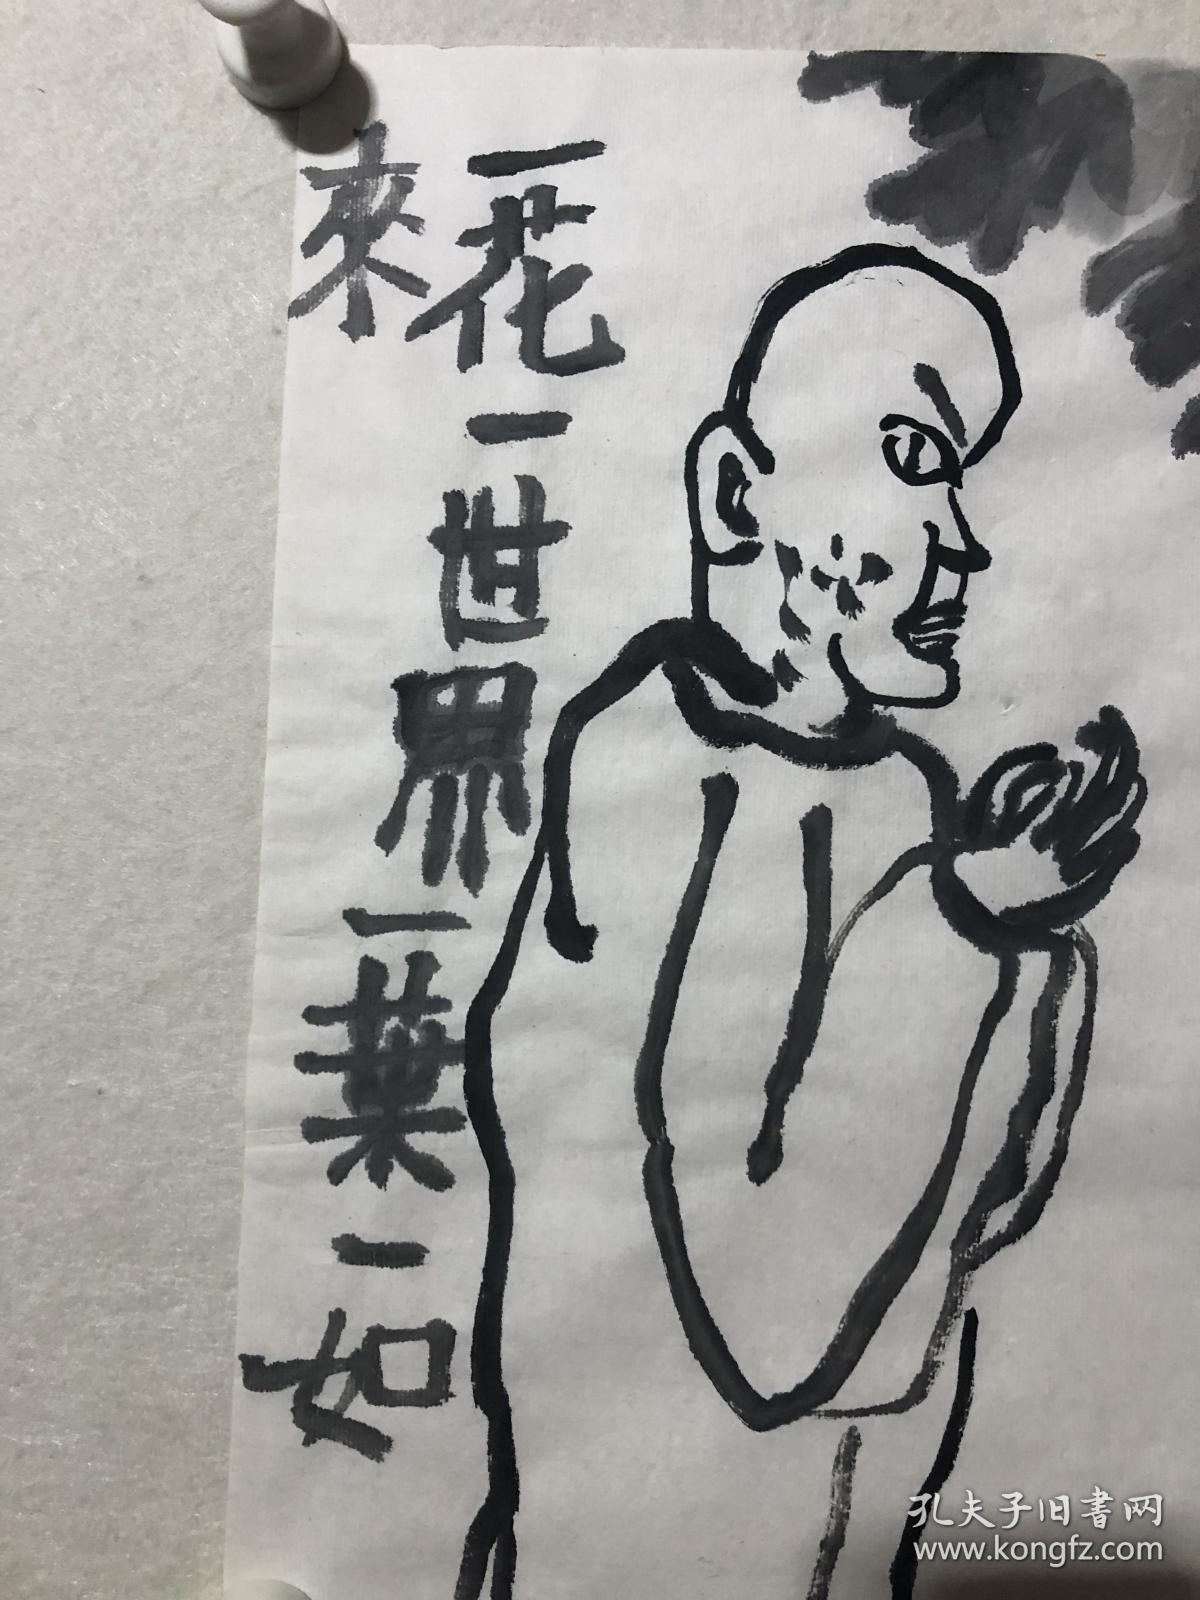 一花一世界一葉一如
來
孔夫子旧書网
www.kongfz.com